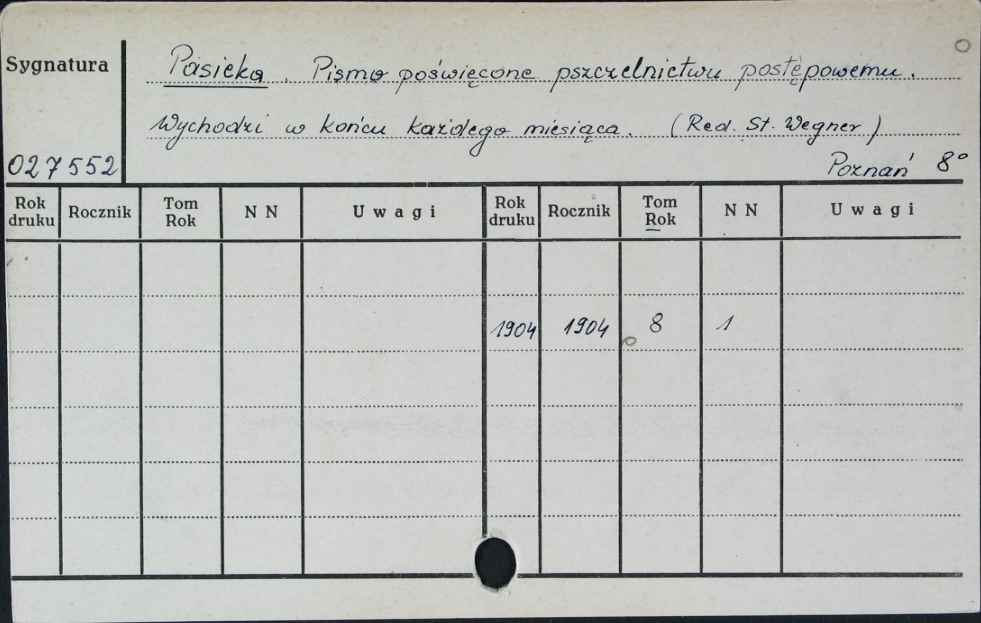 Sygnatura
Pasieka. Pismo poświęcone pszczelnictwu postępowemu.
Wychodzi w końcu każdego miesiąca. (Red. St. Wegner)
027552
Poznań 8°
Rok druku Rocznik Tom Rok N N Uwagi Rok druku Rocznik Tom Rok N N Uwagi
1904 1904 8 1